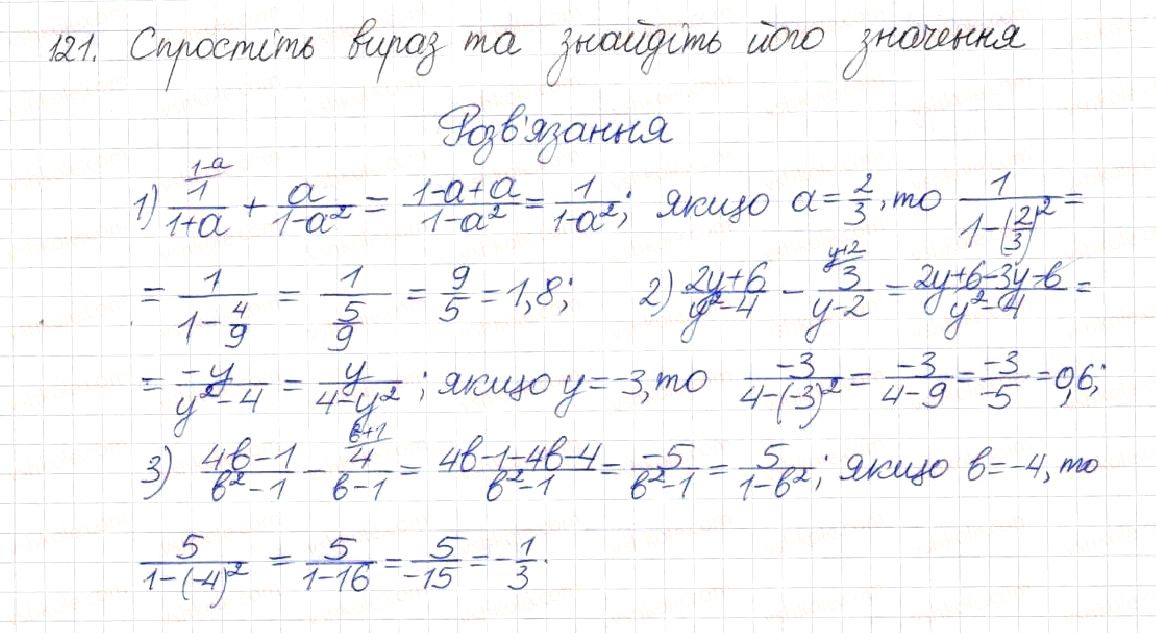 121. Спростіть вираз та знайдіть його значення
Розв'язання
1) \frac{\overset{1-a}{1}}{1+a} + \frac{a}{1-a^2} = \frac{1-a+a}{1-a^2} = \frac{1}{1-a^2}; якщо a = \frac{2}{3}, то \frac{1}{1-(\frac{2}{3})^2} =
= \frac{1}{1-\frac{4}{9}} = \frac{1}{\frac{5}{9}} = \frac{9}{5} = 1,8; 2) \frac{2y+6}{y^2-4} - \frac{\overset{y+2}{3}}{y-2} = \frac{2y+6-3y-6}{y^2-4} =
= \frac{-y}{y^2-4} = \frac{y}{4-y^2}; якщо y = -3, то \frac{-3}{4-(-3)^2} = \frac{-3}{4-9} = \frac{-3}{-5} = 0,6;
3) \frac{4b-1}{b^2-1} - \frac{\overset{b+1}{4}}{b-1} = \frac{4b-1-4b-4}{b^2-1} = \frac{-5}{b^2-1} = \frac{5}{1-b^2}; якщо b = -4, то
\frac{5}{1-(-4)^2} = \frac{5}{1-16} = \frac{5}{-15} = -\frac{1}{3}.